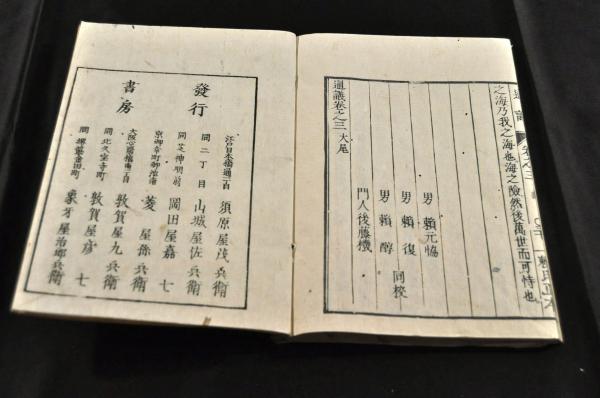 之海乃我之海也海之險然後萬世而可恃也
通議卷之三大尾
男 頼元協
男 頼 復
男 頼 醇 同校
門人後藤機
發行
書房
江戸日本橋通 須原屋茂兵衛
同二丁目 山城屋佐兵衛
同芝神明前 岡田屋嘉七
京御幸町御池南 菱屋孫兵衛
大阪心齋橋南 敦賀屋九兵衛
同北久宝寺町 敦賀屋彦七
同 象牙屋治郎兵衛